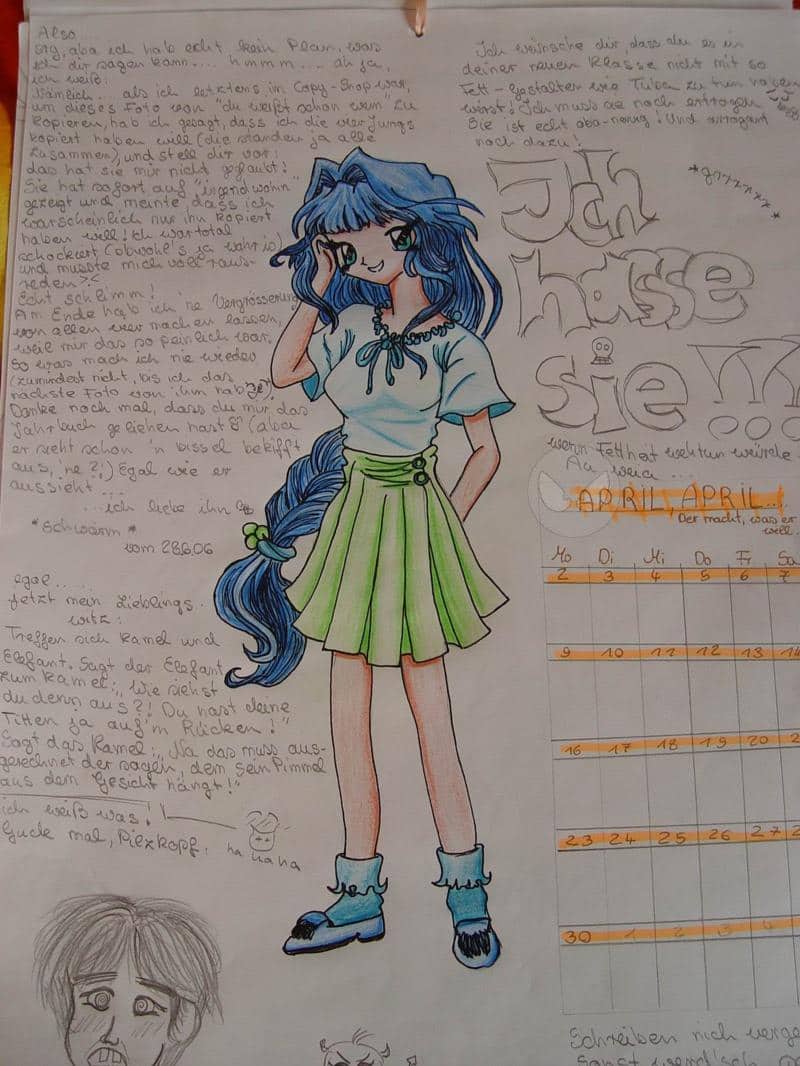 Also...
sag, aba ich hab echt kein Plan, was
ich dir sagen kann.... hmmm.... ah ja,
ich weiß:
Nämlich... als ich letztens im Copy-Shop war,
um dieses Foto von "du weißt schon wem" zu
kopieren, hab ich gesagt, dass ich die vier Jungs
kopiert haben will (die standen ja alle
zusammen), und stell dir vor:
das hat sie mir nicht geglaubt!
Sie hat sofort auf "irgendwohin"
gezeigt und meinte, dass ich
warscheinlich nur ihn kopiert
haben will! Ich war total
schockiert (obwohl's ja wahr is)
und musste mich voll raus-
reden >.<
Echt schlimm!
Am Ende hab ich 'ne Vergrösserung
von allen vier machen lassen,
weil mir das so peinlich war.
So was mach ich nie wieder
(zumindest nicht, bis ich das
nächste Foto von ihm hab
Danke noch mal, dass du mir das
Jahrbuch geliehen hast (aba
er sieht schon 'n bissel bekifft
aus, 'ne?!) Egal wie er
aussieht...
...ich liebe ihn
*schwärm*
vom 28.6.06
egal.....
Jetzt mein Lieblings-
witz:
Treffen sich Kamel und
Elefant. Sagt der Elefant
zum Kamel: „Wie siehst
du denn aus?! Du hast deine
Titten ja auf'm Rücken!"
Sagt das Kamel: „Na das muss aus-
gerechnet der sagen, dem sein Pimmel
aus dem Gesicht hängt!"
ich weiß was!
Guck mal, Pilzkopf. ha ha ha
Ich wünsche dir, dass du es in
deiner neuen Klasse nicht mit so
Fett-Gestalten wie zu tun haben
wirst! Ich muss sie noch ertragen
Sie ist echt aba-nervig! Und arrogant
noch dazu!
*grrrrrr*
Ich
hasse
sie!!!
wenn Fettheit wehtun würde
APRIL, APRIL...
Der macht, was er
will.
Mo Di Mi Do Fr Sa
2 3 4 5 6 7
9 10 11 12 13 14
16 17 18 19 20 2
23 24 25 26 27 2
30 1 2 3 4
Schreiben nich verge